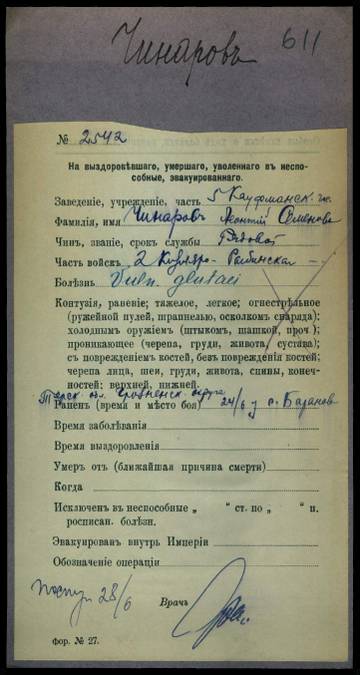 Чинаровъ 611
№ 2542
На выздоровѣвшаго, умершаго, уволеннаго въ неспо-
собные, эвакуированнаго.
Заведеніе, учрежденіе, часть 5 Кауфманск.
Фамилія, имя Чинаровъ Леонтій Семеновъ
Чинъ, званіе, срокъ службы Рядовой
Часть войскъ 2 Кизляро-
Болѣзнь Vuln. glutaei
Контузія, раненіе; тяжелое, легкое; огнестрѣльное
(ружейной пулей, шрапнелью, осколкомъ снаряда);
холоднымъ оружіемъ (штыкомъ, шашкой, проч.);
проникающее (черепа, груди, живота, сустава);
съ поврежденіемъ костей, безъ поврежденія костей;
черепа лица, шеи, груди, живота, спины, конеч-
ностей: верхней, нижней.
Терск. обл. Грозненск. округа
Раненъ (время и мѣсто боя) 24/6 у с. Базанов
Время заболѣванія
Время выздоровленія
Умеръ отъ (ближайшая причина смерти)
Когда
Исключенъ въ неспособные „ “ ст. по „ “ п.
росписан. болѣзн.
Эвакуированъ внутрь Имперіи
Обозначеніе операціи
Поступ. 28/6
Врачъ
фор. № 27.